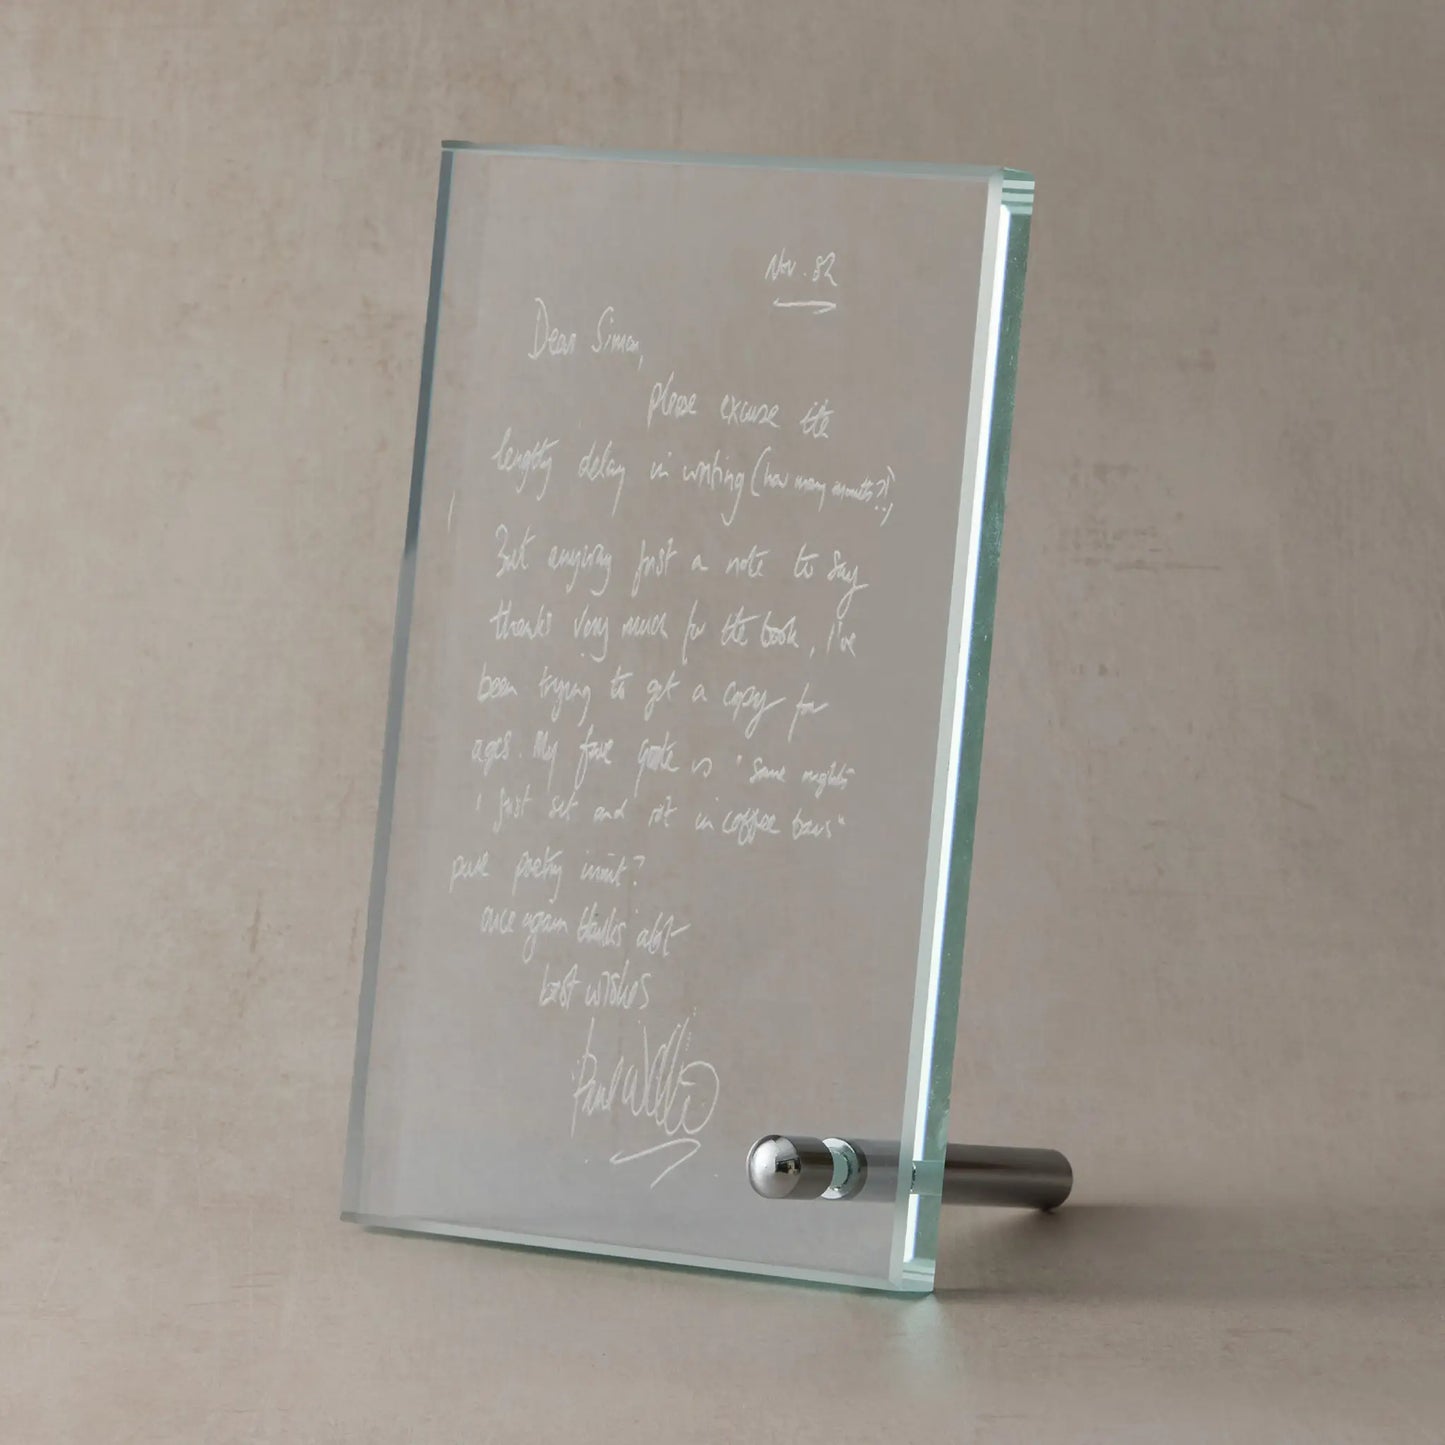 Nov. 82
Dear Simon,
please excuse the
lengthy delay in writing (how many months?!)
But anyway just a note to say
thanks very much for the book, I've
been trying to get a copy for
ages. My fave quote is "some nights
I just sit and rot in coffee bars"
pure poetry innit?
once again thanks alot
best wishes
Paul